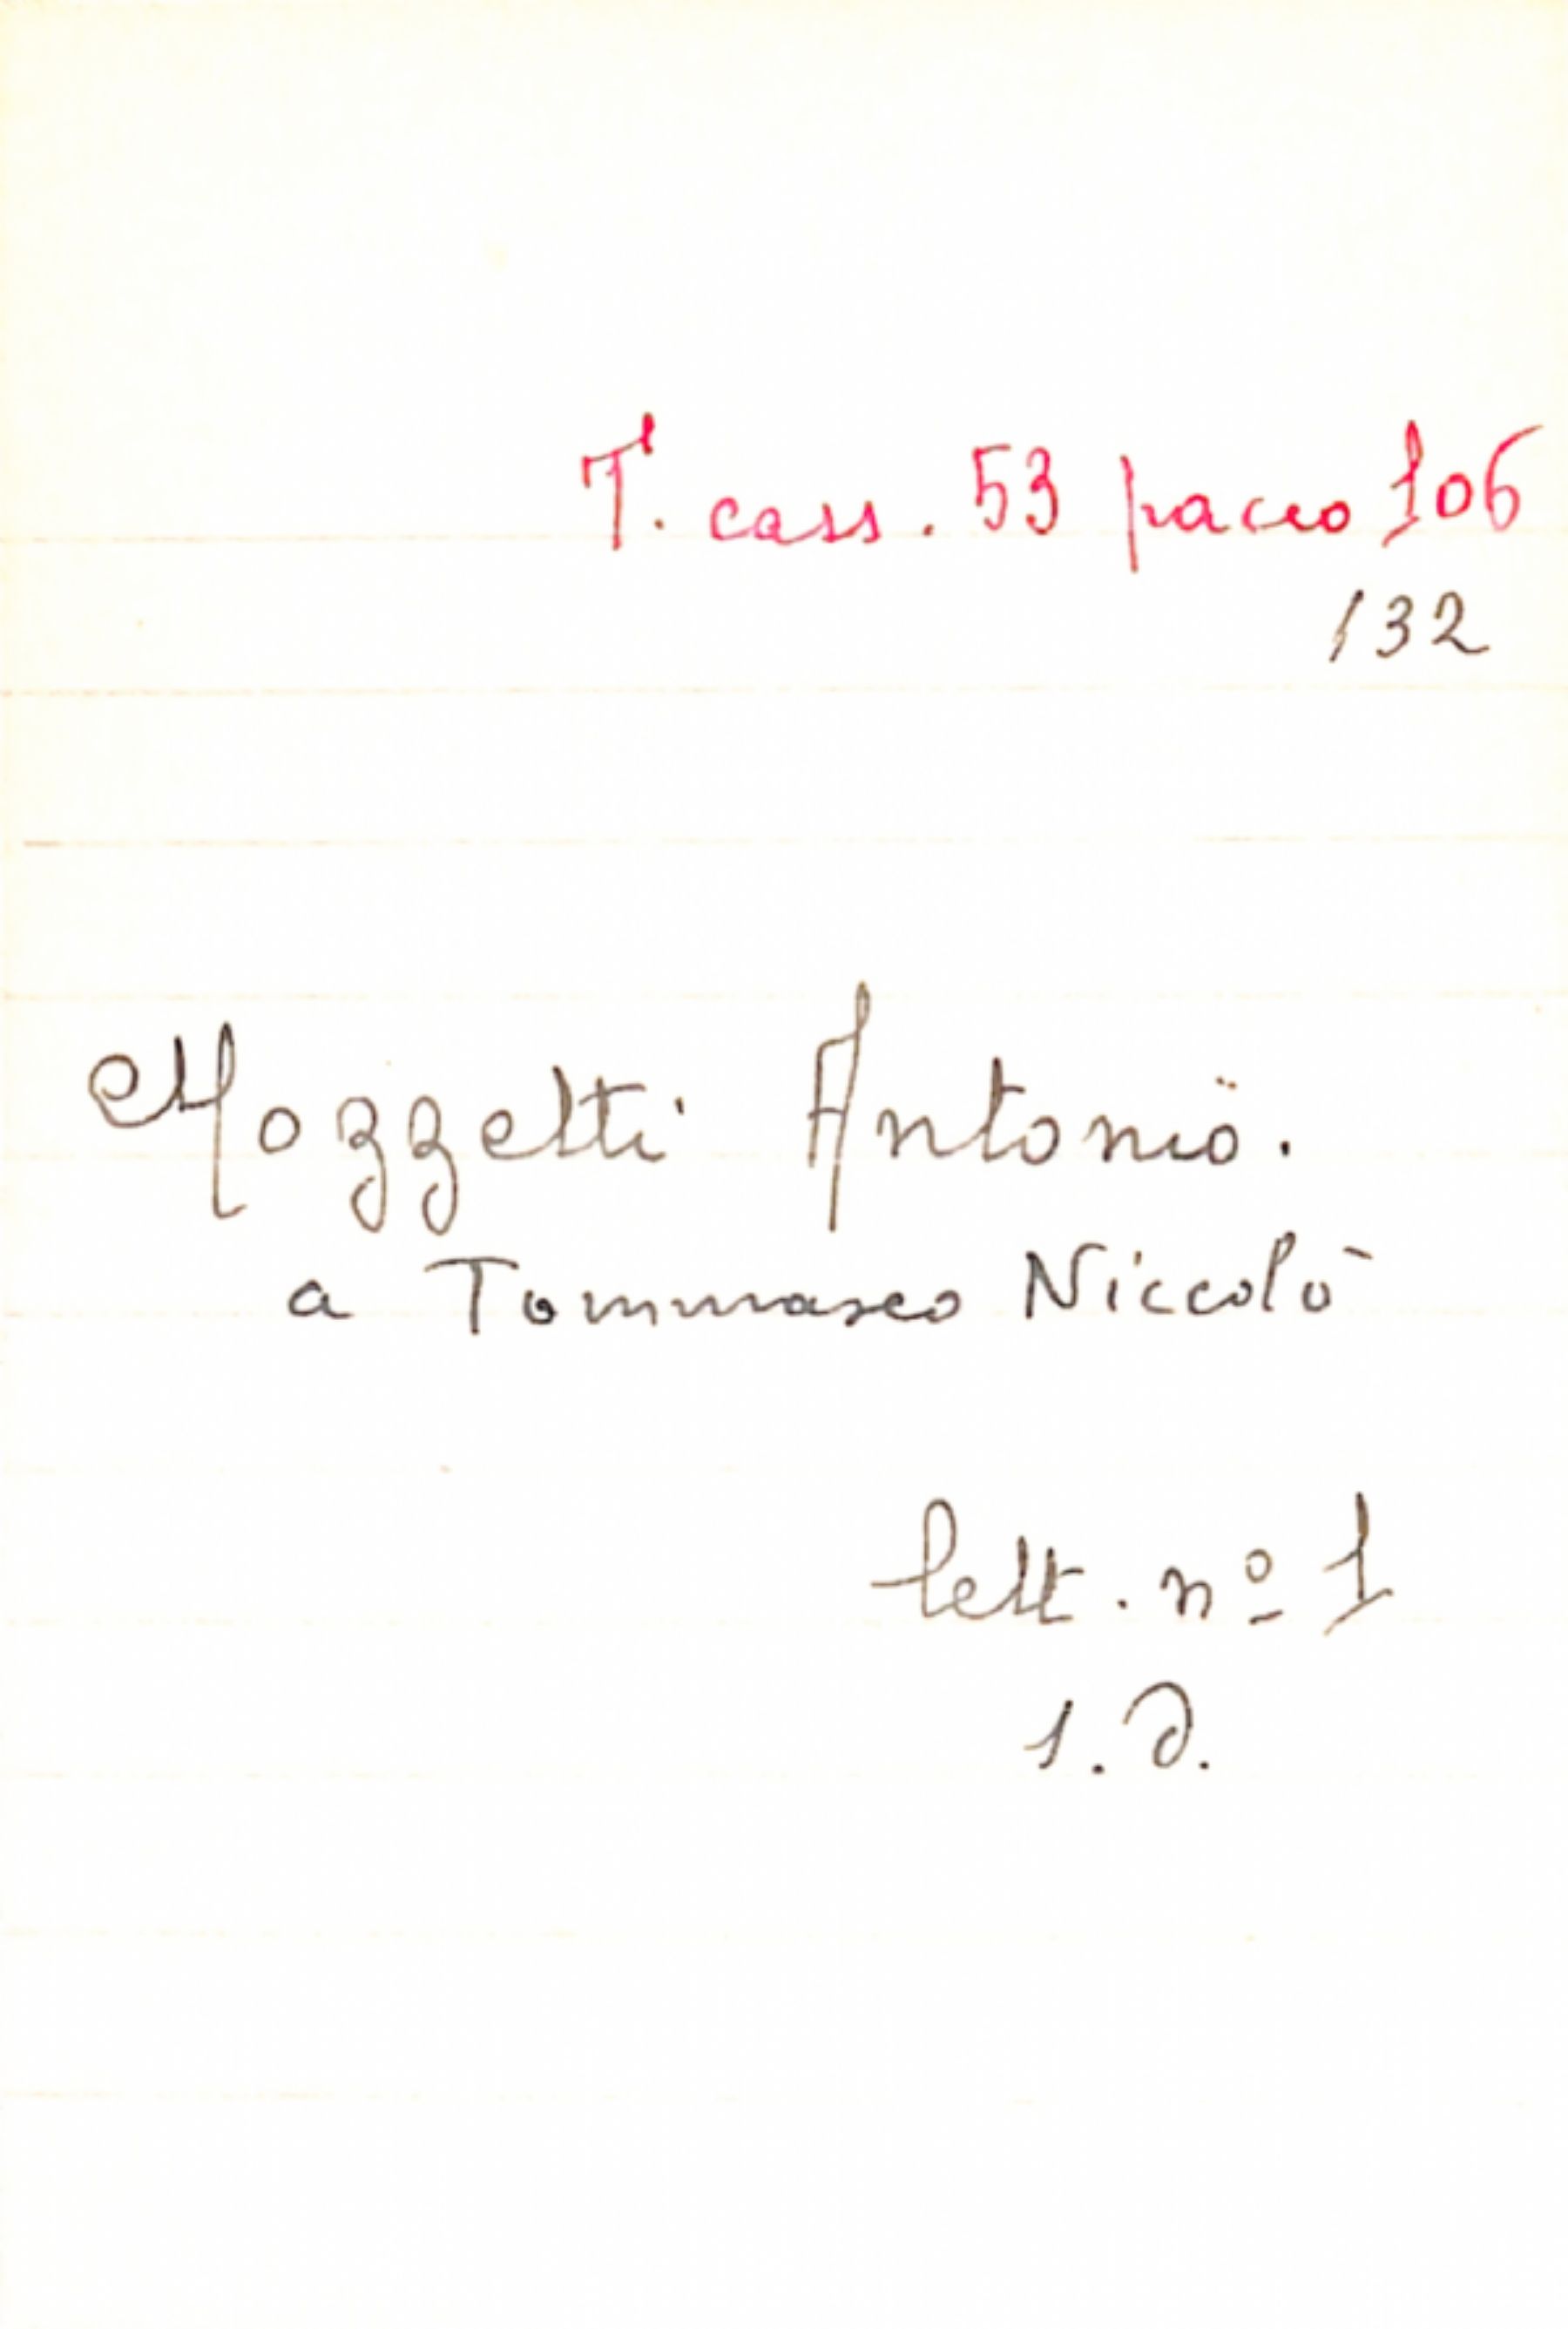 T. cass. 53 pacco 106
132
Mozzetti Antonio.
a Tommaseo Niccolò
lett. nº 1
s.d.